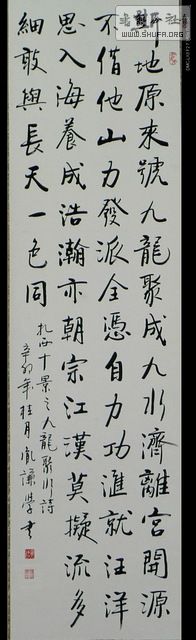 地原來號九龍聚成九水濟離宮開源
不借他山力發派全憑自力功滙就汪洋
思入海養成浩瀚亦朝宗江漢莫擬流多
細敢與長天一色同
扎西十景之九龍聚水詩
辛卯年桂月胤謙學书
WWW.SHUFA.ORG